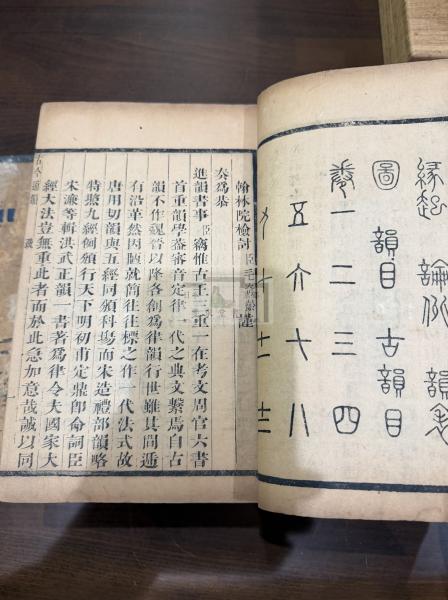 緣起 論例 韻表
圖 韻目 古韻目
卷一 二 三 四
五 六 七 八
九 十 十一 十二
翰林院檢討臣毛奇齡謹
奏爲恭
進韻書事臣竊惟古王三重一在考文周官六書
首重韻學蓋審音定律一代之典文繫焉自古
韻不作魏晉以降各創爲律韻行世雖其間遞
有沿革然因陋就簡往往標之作一代法式故
唐用切韻與五經同頒科場而宋造禮部韻略
特鑒九經例頒行天下明初甫定鼎卽命詞臣
宋濂等輯洪武正韻一書著爲律令夫國家大
經大法豈無重此者而於此急加意哉誠以同
古今通韻